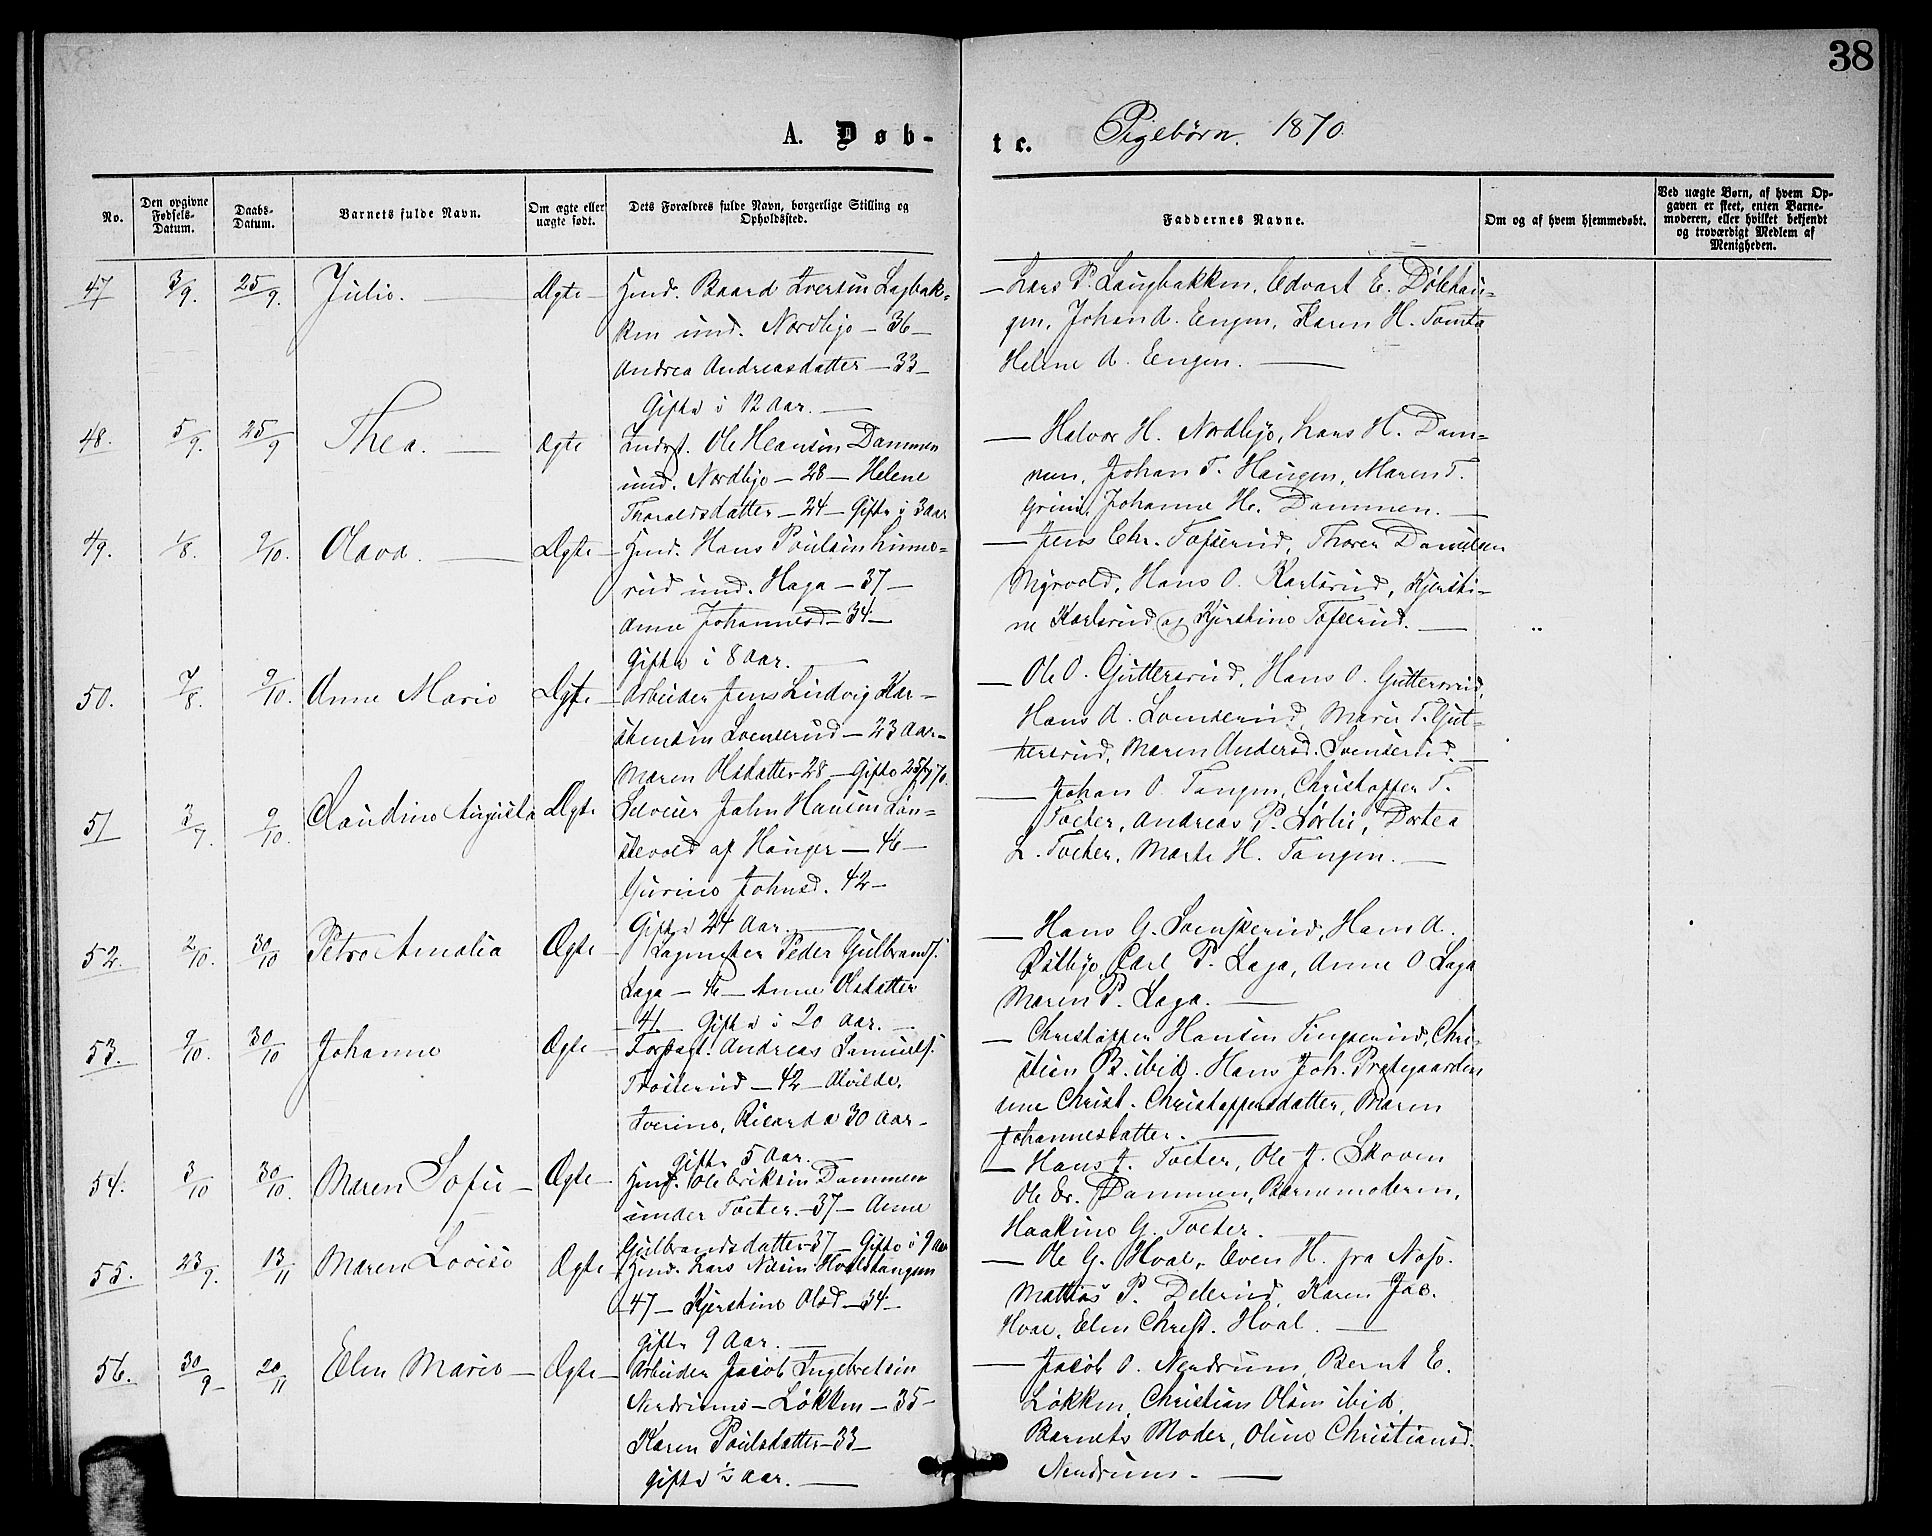 38
A. Døb-
te.
Pigebørn. 1870.
No.
Den opgivne Fødsels-Datum.
Daabs-Datum.
Barnets fulde Navn.
Om ægte eller uægte født.
Dets Forældres fulde Navn, borgerlige Stilling og Opholdssted.
Faddernes Navne.
Om og af hvem hjemmedøbt.
Ved uægte Børn, af hvem Opgaven er skeet, enten Barnemoderen, eller hvilket bekjendt og troværdigt Medlem af Menigheden.
47 3/9. 25/9. Julie. Ægte Hmd. Baard Iversen Lagbak-
ken und. Nordbye - 36 -
Andrea Andreasdatter - 33 -
Gifte i 12 Aar.
Lars P. Laugbakken, Edvart E. Dølehau-
gen, Johan A. Engen, Karen H. Tomta
Helene A. Engen.
48. 5/9. 25/9 Thea. Ægte Inderst. Ole Hansen Dammen
und. Nordbye - 28 - Helene
Thoraldsdatter - 24 - Gifte i 3 Aar
Halvor H. Nordbye, Hans H. Dam-
men, Johan T. Haugen, Maren T.
Grini, Johanne H. Dammen.
49. 1/8. 9/10. Olava. Ægte Hmd. Hans Poulsen Linne-
rud und. Haga - 37 -
Anne Johannesd - 34 -
Gifte i 8 Aar.
Jens Chr. Tofserud, Thorer Danielsen
Myrvold, Hans O. Karlsrud, Kjersti-
ne Karlsrud og Kjerstine Tofserud.
50. 7/8. 9/10. Anne Marie Ægte Arbeider Jens Ludvig Kar-
stensen Svenserud - 23 Aar -
Maren Olsdatter 28 - Gifte
Ole O. Guttersrud, Hans O. Guttersrud,
Hans A. Svenserud, Marie T. Gut-
tersrud, Maren Andersd. Svenserud.
51 3/7. 9/10. Claudine Augusta Ægte Selveier John Hansen
af Hauger - 46 -
Gurine Johnsd. 42 -
Gifte 24 Aar.
Johan O. Tangen, Christoffer T.
Toeter, Andreas P. Sørlie, Dortea
L. Toeter, Marte H. Tangen.
52. 2/10. 30/10 Petra Amalia Ægte Lagmester Peder Gulbrands.
Laga - 46 - Anne Olsdatter
- 41 - Gifte i 20 Aar.
Hans G. Svenserud, Hans A.
Østbye, Carl P. Laga, Anne O Laga
Maren P. Laga.
53. 9/10. 30/10 Johanne Ægte Forpagt. Andreas Samuels.
Troserud - 42 - Alvilde,
Iverine, Ricarda 30 Aar -
gifte 5 Aar.
Christoffer Hansen Tingserud, Chri-
stian B. ibid. Hans Joh. Prestegaarden
Christ. Christoffersdatter, Maren
Johannesdatter.
54. 3/10 30/10. Maren Sofie Ægte Hmd. Ole Eriksen Dammen
under Toeter. - 37 - Anne
Gulbrandsdatter 37 - Gifte i 9 Aar
Hans J. Toeter, Ole J. Skoven
Ole Er. Dammen, Barnemoderen,
Haakine G. Toeter.
55. 23/9. 13/11 Maren Lovise Ægte Hmd. Lars Nilsen Hvalstangen
- 47 - Kjerstine Olsd - 34 -
Gifte 9 Aar.
Ole G. Hval, Even H. fra Næs.
Mathias P. Delerud, Karen Jac.
Hval, Elen Christ. Hval.
56. 30/9 20/11 Elen Marie Ægte Arbeider Jacob Ingebretsen
Nerdrums - Løkken - 35 -
Karen Poulsdatter - 33 -
gifte ½ Aar.
Jacob O. Nerdrum, Bernt E.
Løkken, Christian Olsen ibid.
Barnets Moder, Oline Christiansd.
Nerdrum.